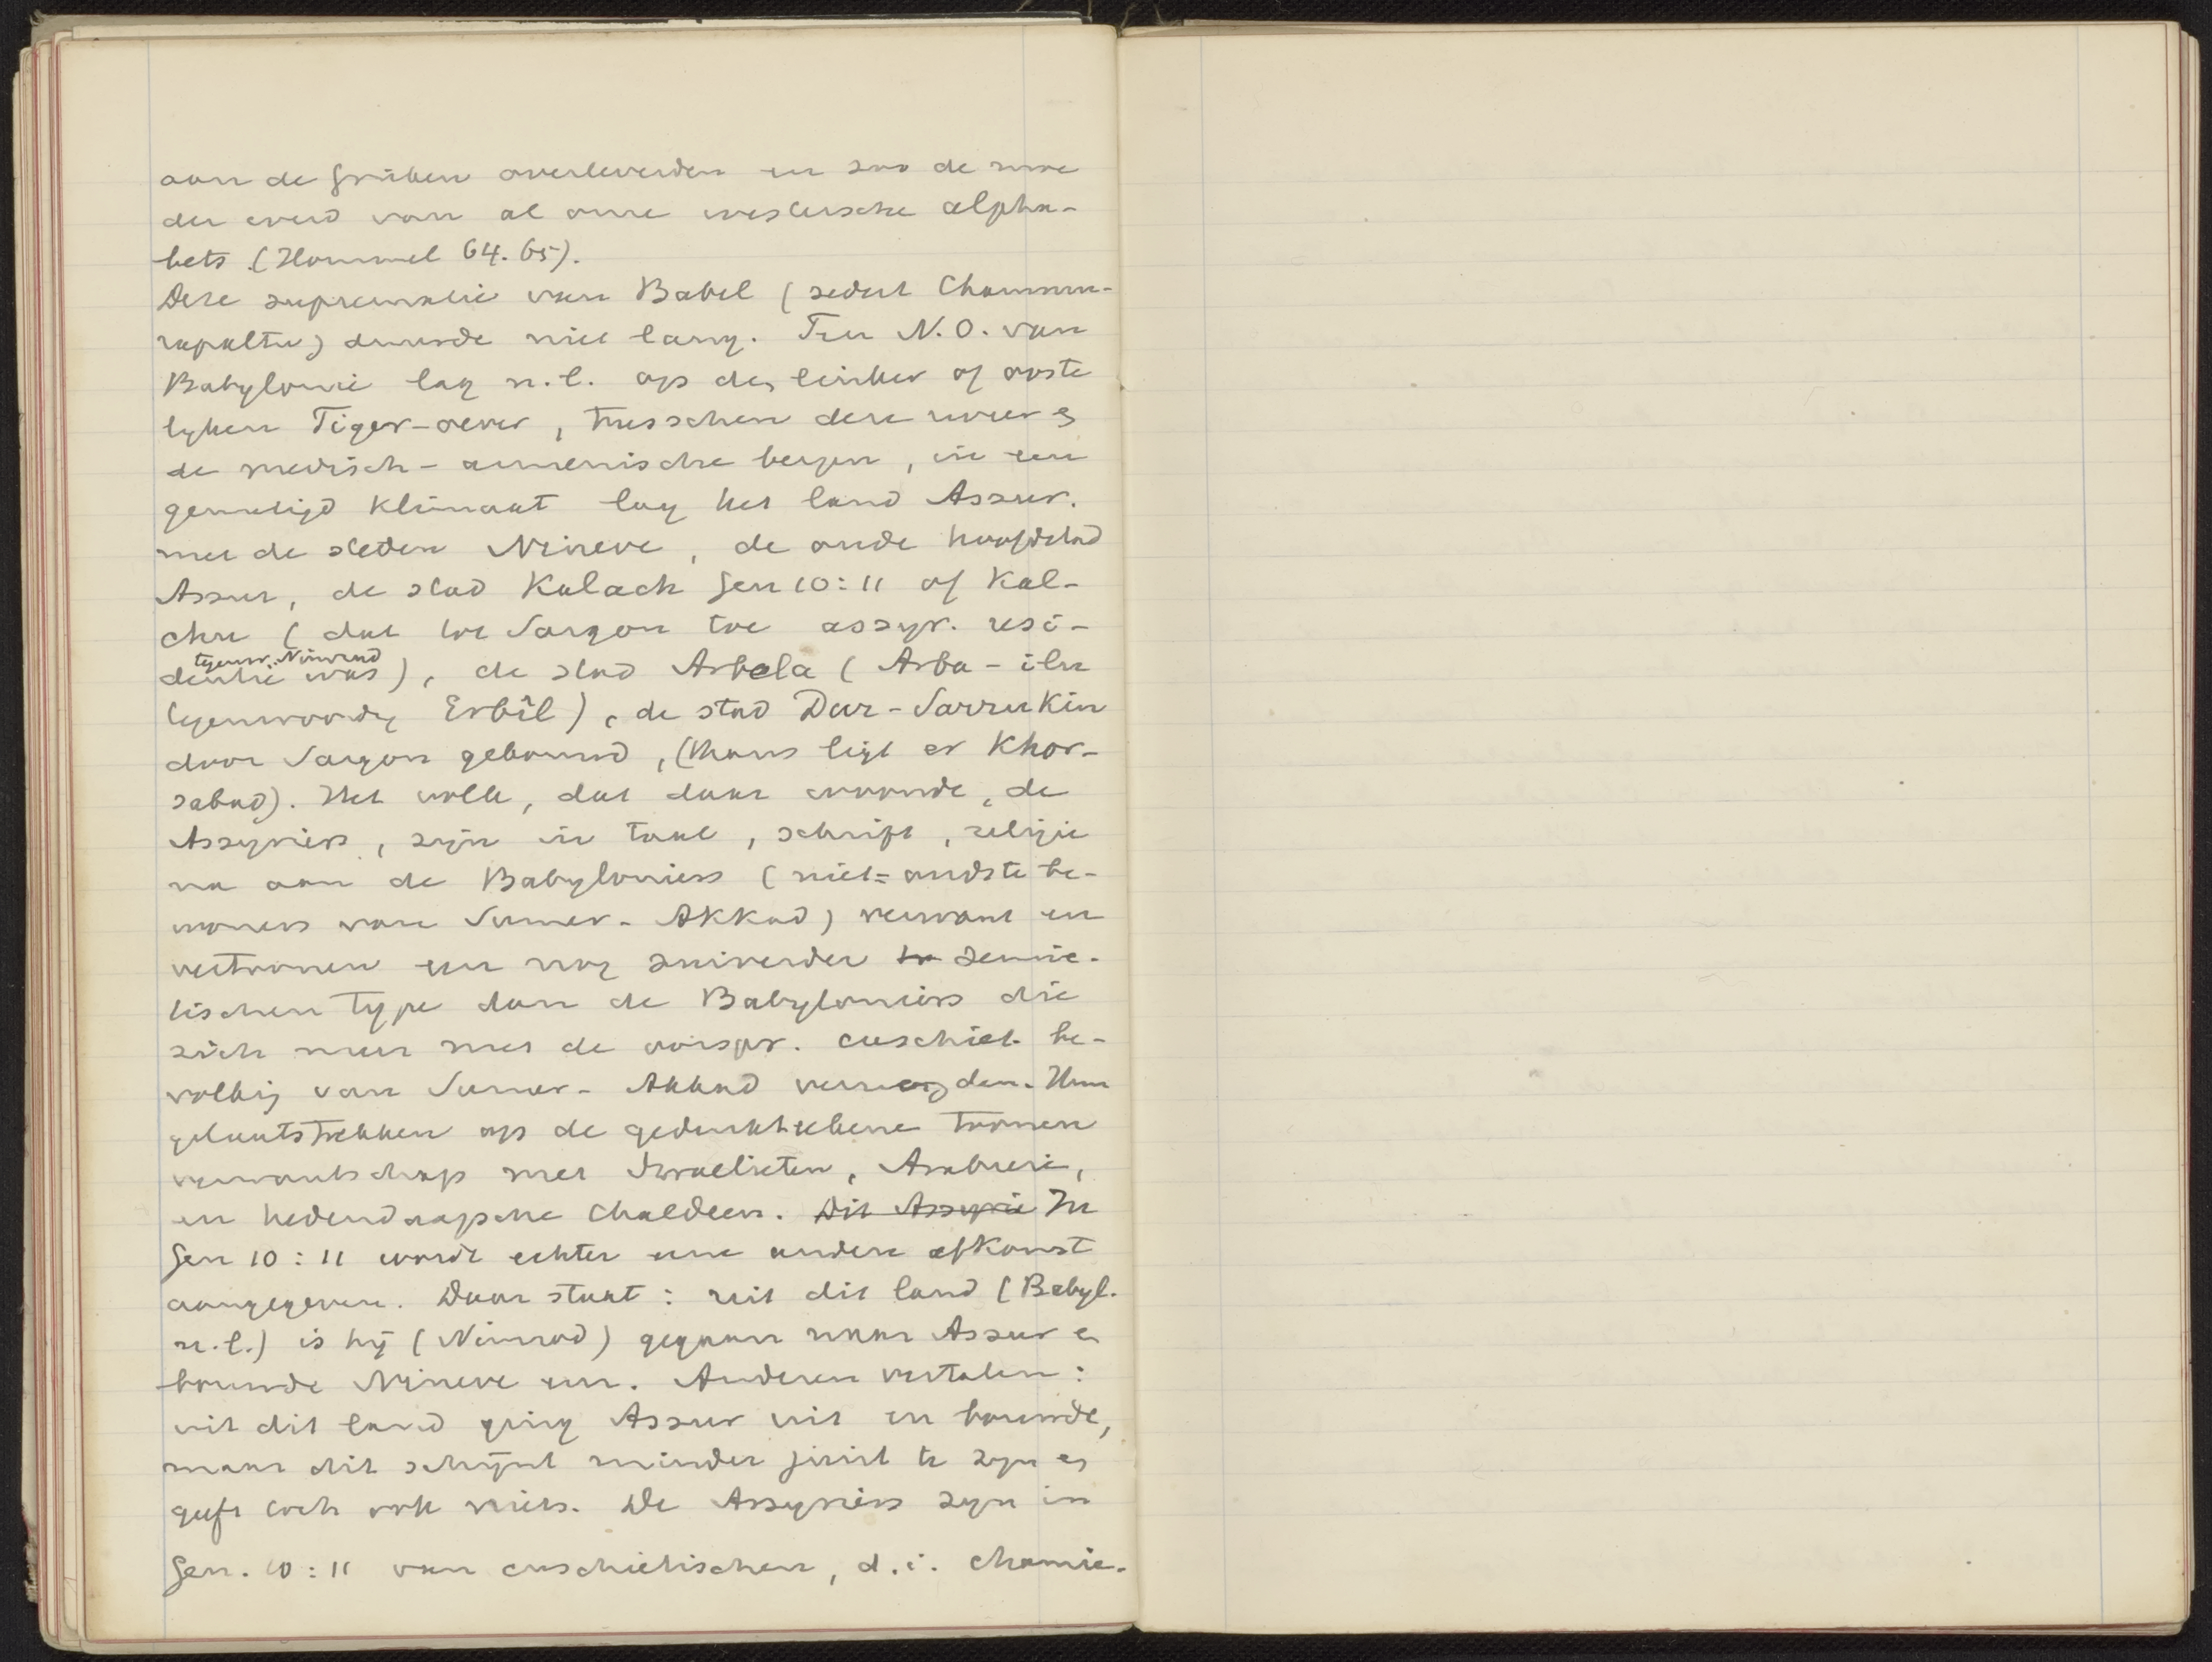 aan de Grieken overleverden en zoo de moe
der werd van al onze westersche alpha-
bets (Hommel 64. 65).
Deze suprematie van Babel (sedert Chammu-
rapaltu) duurde niet lang. Ten N.O. van
Babylonie lag n.l. op den linker of ooste
lyken Tiger-oever, tusschen deze rivier en
de medisch-armenische bergen, in een
gematigd klimaat lag het land Assur.
met de steden Nineve, de oude hoofdstad
Assur, de stad Kalach Gen 10:11 of Kal-
chu (dat tot Sargon toe assyr. resi-
tegenw. Nimrud
dentie was), de stad Arbela (Arba-ilu
tegenwoordig Erbîl), de stad Dur-Sarrukin
door Sargon gebouwd, (thans ligt er Khor-
sabad). Het volk, dat daar woonde, de
Assyriers, zijn in taal, schrift, religie
na aan de Babyloniers (niet = oudste be-
woners van Sumer-Akkad) verwant en
vertoonen een nog zuiverder to semie-
tischen type dan de Babyloniers die
zich meer met de oorspr. cuschiet. be-
volking van Sumer-Akkad vermengden. Hun
gelaatstrekken op de gedenkteekene toonen
verwantschap met Israelieten, Arabieren,
en hedendaagsche Chaldeers. Dit Assyrie In
Gen 10:11 wordt echter eene andere afkomst
aangegeven. Daar staat: uit dit land (Babyl.
n.l.) is hij (Nimrod) gegaan naar Assur en
bouwde Nineve enz. Anderen vertalen:
uit dit land ging Assur uit en bouwde,
maar dit schijnt minder juist te zijn en
geeft toch ook niets. De Assyriers zijn in
Gen. 10:11 van cuschietischen, d.i. chamie-